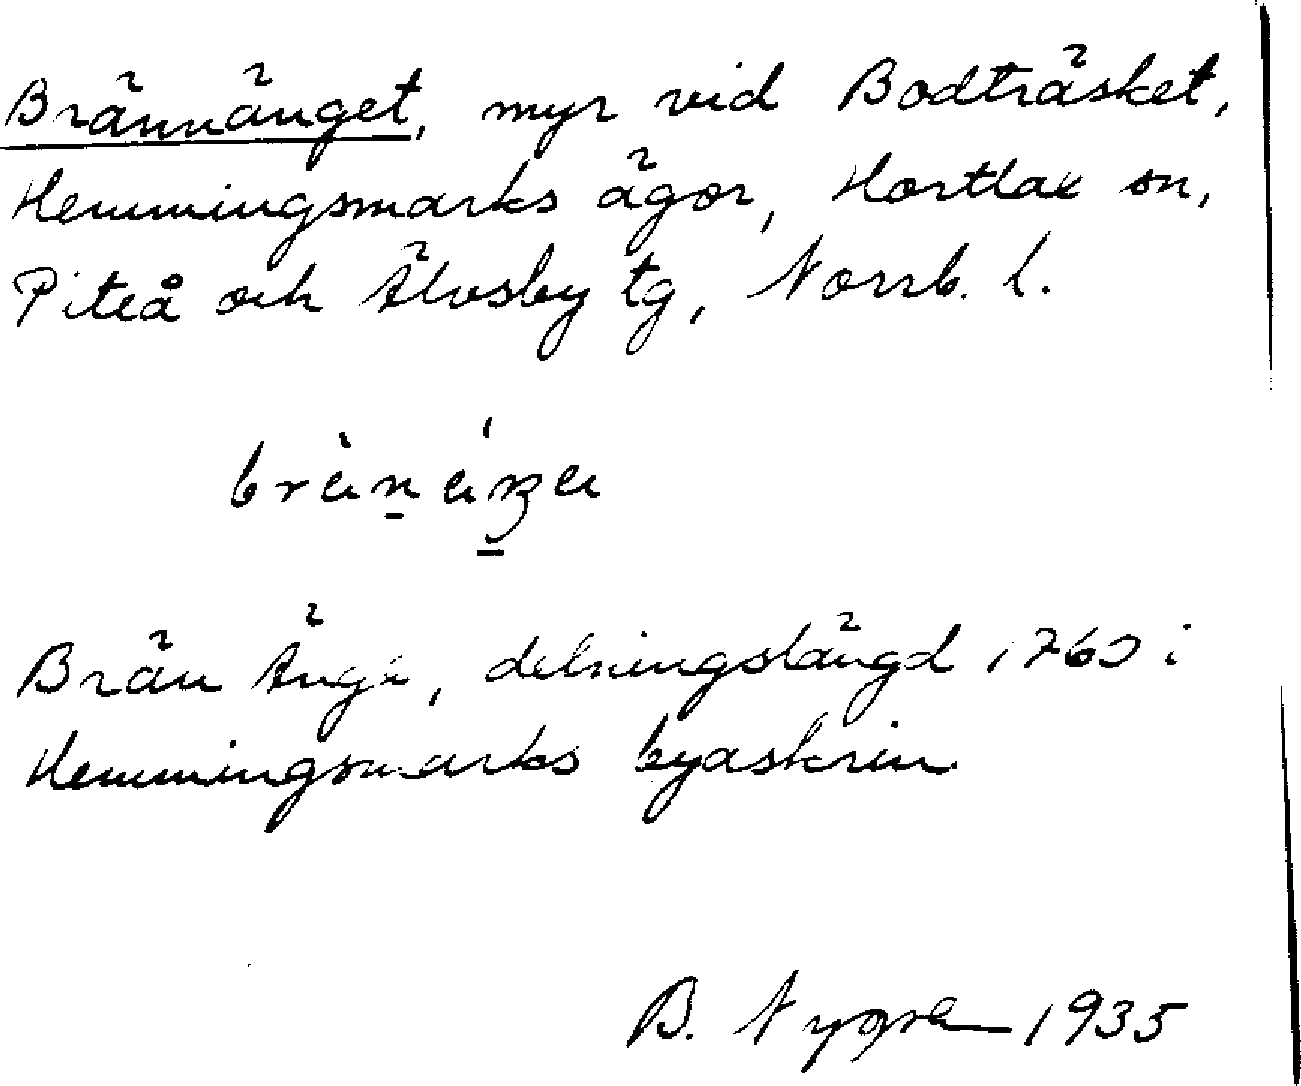 Brännänget, myr vid Bodträsket,
Hemmingsmarks ägor, Hortlax sn,
Piteå och Älvsby tg, Norrb. l.
Brän Änge, delningslängd 1760 i
Hemmingsmarks byaskrin
B. Nygren 1935